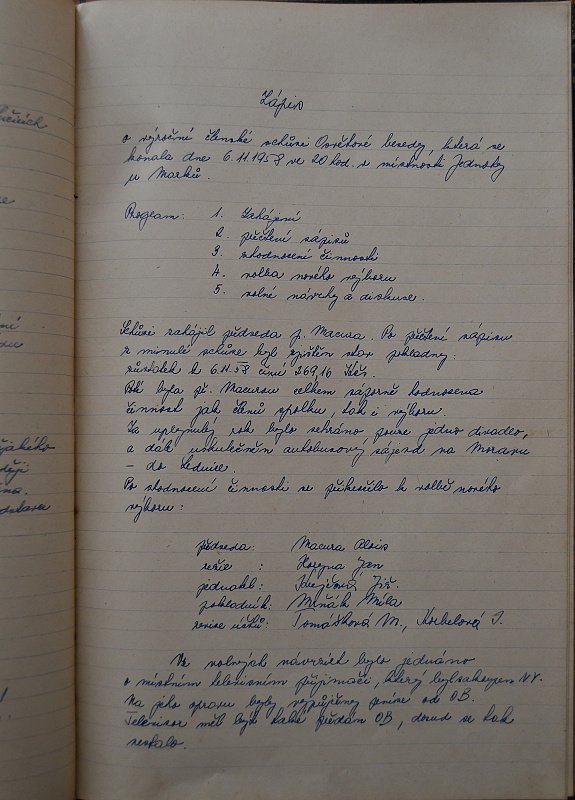 ících
ejakého
ději
Zápis
o výroční členské schůzi Osvětové besedy, která se
konala dne 6.11.1958 ve 20 hod. v místnosti Jednoty
u Marků.
Program: 1. Zahájení
2. přečtení zápisů
3. zhodnocení činnosti
4. volba nového výboru
5. volné návrhy a diskuse.
Schůzi zahájil předseda p. Macura. Po přečtení zápisu
z minulé schůze byl zjištěn stav pokladny:
zůstatek k 6.11.58 činí 269,10 Kčs.
Poté byla př. Macurou celkem názorně hodnocena
činnost jak členů spolku, tak i výboru.
Za uplynulý rok bylo sehráno pouze jedno divadlo,
a dále uskutečněn autobusový zájezd na Moravu
– do Lednice.
Po zhodnocení činnosti se přikročilo k volbě nového
výboru:
předseda: Macura Alois
režie : Horyna Jan
jednatel: Jiř.
pokladník: Míla
revise účtů: Tomášková M., Korbelová J.
Ve volných návrzích bylo jednáno
o místním televisním přijimači, který byl zakoupen NV.
Na jeho opravu byly vypůjčeny peníze od OB.
Televizor měl býti také předán OB, dosud se tak
nestalo.